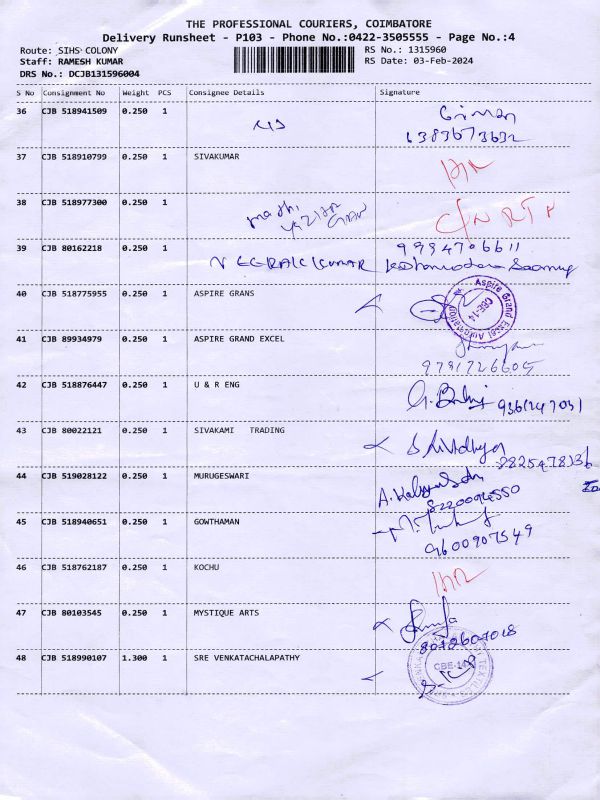 THE PROFESSIONAL COURIERS, COIMBATORE
Delivery Runsheet - P103 - Phone No.:0422-3505555 - Page No.:4
Route: SIHS COLONY
RS No.: 1315960
Staff: RAMESH KUMAR
RS Date: 03-Feb-2024
DRS No.: DCJB131596004
S No Consignment No Weight PCS Consignee Details Signature
36 CJB 518941509 0.250 1
6383673632
37 CJB 518910799 0.250 1 SIVAKUMAR
38 CJB 518977300 0.250 1
39 CJB 80162218 0.250 1
9994706611
40 CJB 518775955 0.250 1 ASPIRE GRANS
Aspire Grand Excel Automation
CBE-14
41 CJB 89934979 0.250 1 ASPIRE GRAND EXCEL
9791726605
42 CJB 518876447 0.250 1 U & R ENG
43 CJB 80022121 0.250 1 SIVAKAMI TRADING
Srividhya
44 CJB 519028122 0.250 1 MURUGESWARI
8220094550
45 CJB 518940651 0.250 1 GOWTHAMAN
9600907549
46 CJB 518762187 0.250 1 KOCHU
47 CJB 80103545 0.250 1 MYSTIQUE ARTS
48 CJB 518990107 1.300 1 SRE VENKATACHALAPATHY
CBE-14